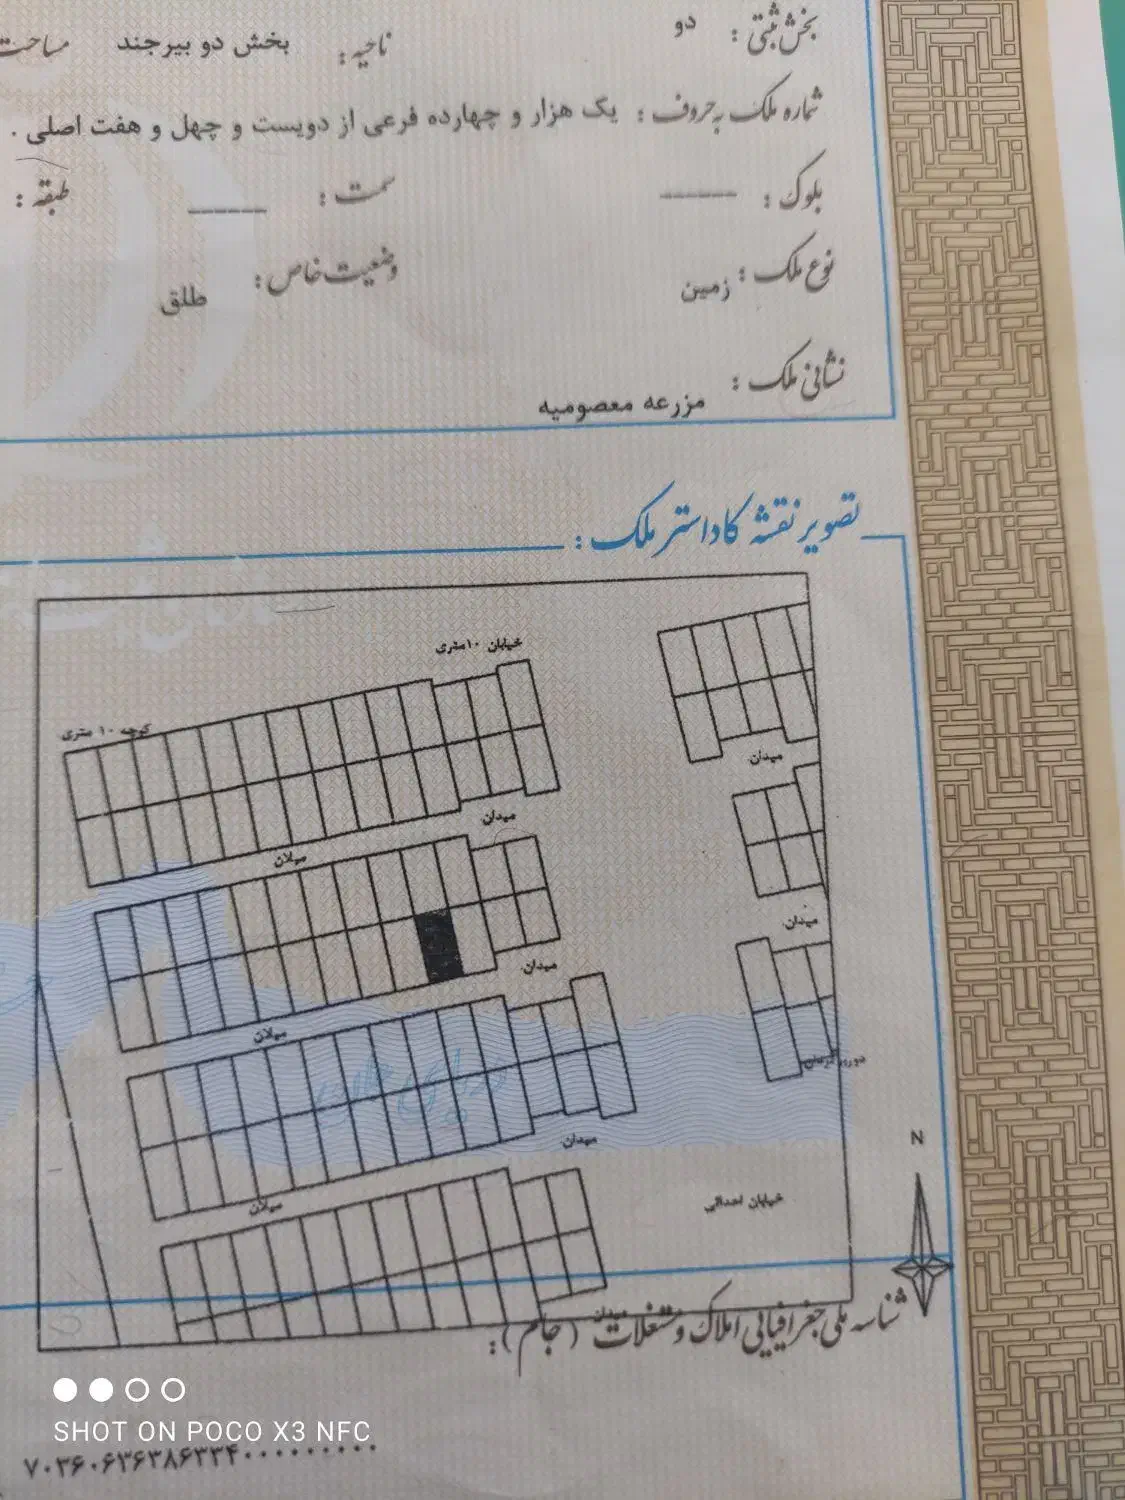 بخش ثبتی : دو ناحیه : بخش دو بیرجند مساحت
شماره ملک به حروف : یک هزار و چهارده فرعی از دویست و چهل و هفت اصلی .
بلوک : ـــــــ سمت : ـــــــ طبقه :
نوع ملک : زمین وضعیت خاص : طلق
نشانی ملک : مزرعه معصومیه
تصویر نقشه کاداستر ملک :
خیابان ۱۰متری
کوچه ۱۰ متری
میدان
میدان
میلان
میدان
میدان
میلان
دوربرگردان
میدان
N
خیابان احداثی
میلان
میدان
شناسه ملی جغرافیایی املاک و مستغلات ( جام ) :
SHOT ON POCO X3 NFC
۷۰۳۶۰۶۳۶۳۸۶۳۳۴۰۰۰۰۰۰۰۰۰۰